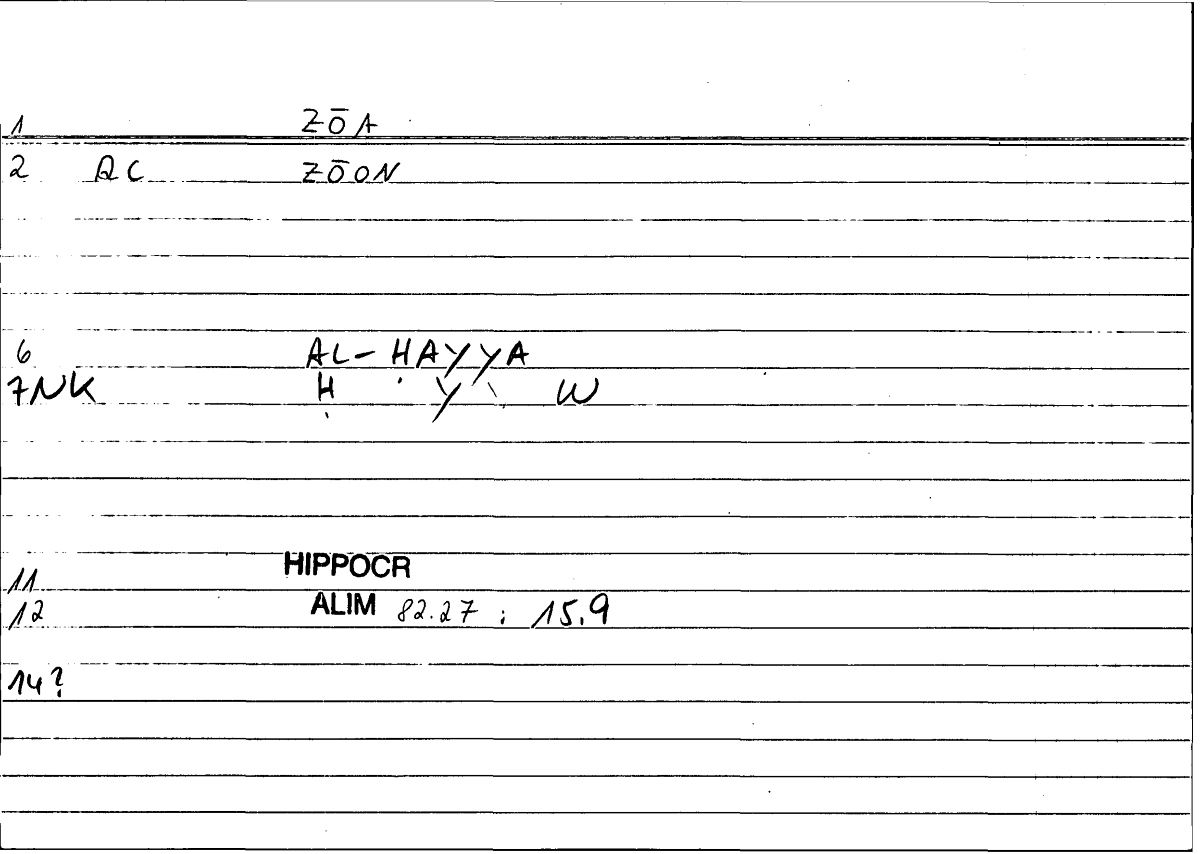 1 ZŌA
2 QC ZŌON
6 AL-ḤAYYA
7NK Ḥ Y W
11 HIPPOCR
12 ALIM 82.27 : 15.9
14?